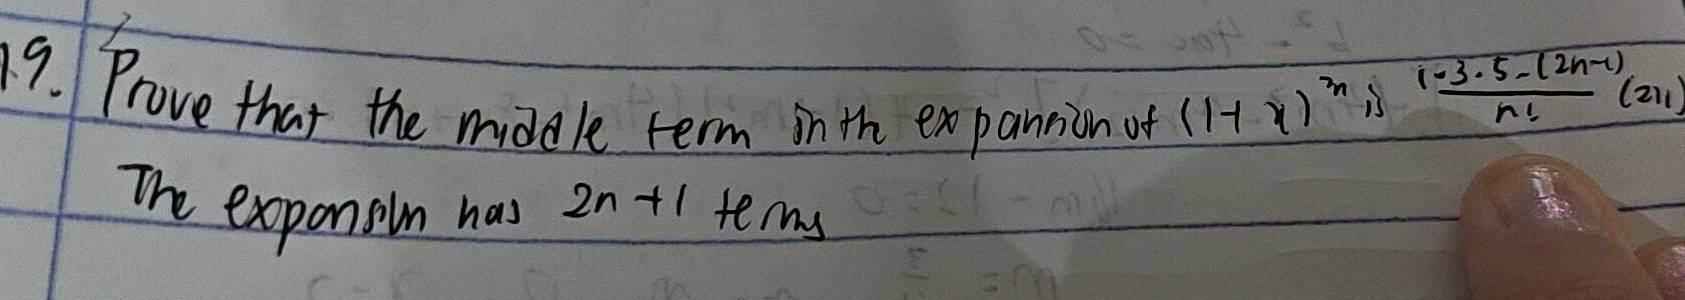 19. Prove that the middle term in th expansion of (1+x)^2n is 1·3·5-(2n-1)/n!
The expansion has 2n+1 terms